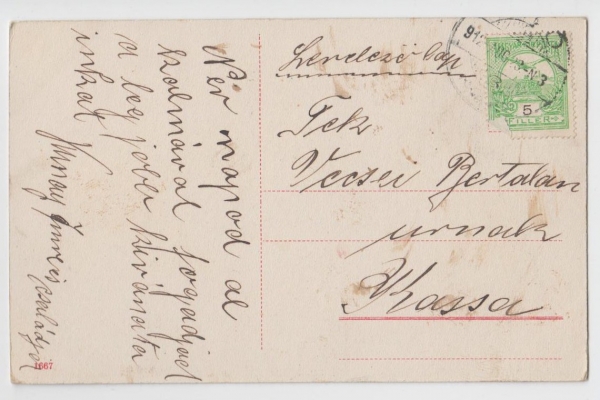 Név napod al
kalmával fogadjad
a leg jobb kivánata
inkat
Kunay Imre és családja
Levelező lap
Tek
Vecsei Bertalan
urnak
Kassa
5
FILLER
1667